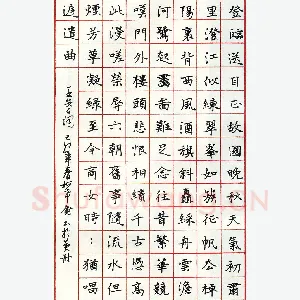 登臨送目正故國晚秋天氣初肅
里澄江似練翠峯如簇征帆去棹
陽裏背西風酒旗斜矗綵舟雲
河鷺起畫圖難足念往昔繁華競
嘆門外樓頭悲恨相續千古憑高
此漫嗟榮辱六朝舊事隨流水但
煙芳草凝綠至今商女時:猶唱
庭遺曲
王安石詞